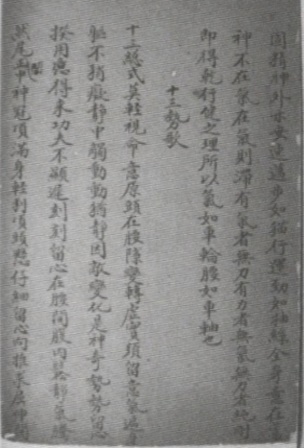 步如猫行運動如抽絲全身意在
神不在氣在氣則滯有氣者無力有力者無氣無力者純剛
即得乾行健之理所以氣如車輪腰如車軸也
十三勢歌
十三總式莫輕視命意原頭在腰隙變轉虛實須留意氣遍身
軀不稍癡靜中觸動動猶靜因敵變化是神奇勢勢留心
揆用意得來功夫不顯遲刻刻留心在腰間腹内鬆靜氣騰
然尾閭中神冠頂滿身輕利頂頭懸仔細留心向推求屈伸